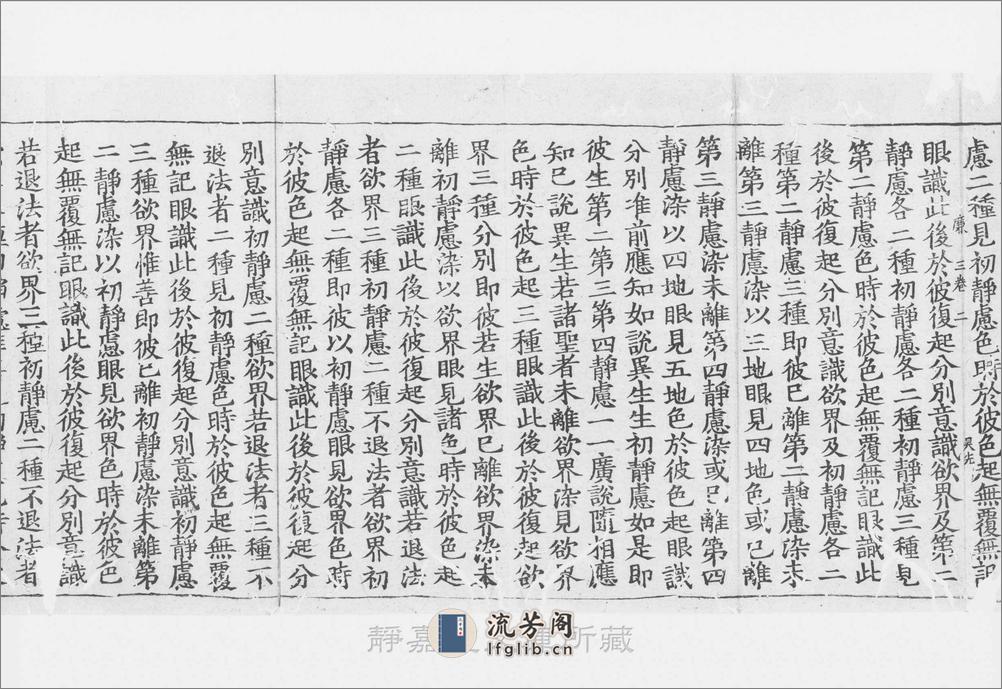 慮二種見初靜慮色時於彼色起無覆無記
廉 三卷 二 吴左
眼識此後於彼復起分別意識欲界及第二
靜慮各二種初靜慮各二種初靜慮三種見
第二靜慮色時於彼色起無覆無記眼識此
後於彼復起分別意識欲界及初靜慮各二
種第二靜慮三種即彼已離第二靜慮染未
離第三靜慮染以三地眼見四地色或已離
第三靜慮染未離第四靜慮染或已離第四
靜慮染以四地眼見五地色於彼色起眼識
分別准前應知如說異生生初靜慮如是即
彼生第二第三第四靜慮一一廣說隨相應
知已說異生若諸聖者未離欲界染見欲界
色時於彼色起三種眼識此後於彼復起欲
界三種分別即彼若生欲界已離欲界染未
離初靜慮染以欲界眼見諸色時於彼色起
二種眼識此後於彼復起分別意識若退法
者欲界三種初靜慮二種不退法者欲界初
靜慮各二種即彼以初靜慮眼見欲界色時
於彼色起無覆無記眼識此後於彼復起分
別意識初靜慮二種欲界若退法者三種不
退法者二種見初靜慮色時於彼色起無覆
無記眼識此後於彼復起分別意識初靜慮
三種欲界惟善即彼已離初靜慮染未離第
二靜慮染以初靜慮眼見欲界色時於彼色
起無覆無記眼識此後於彼復起分別意識
若退法者欲界三種初靜慮二種不退法者
靜嘉 所藏
流芳阁
lfglib.cn